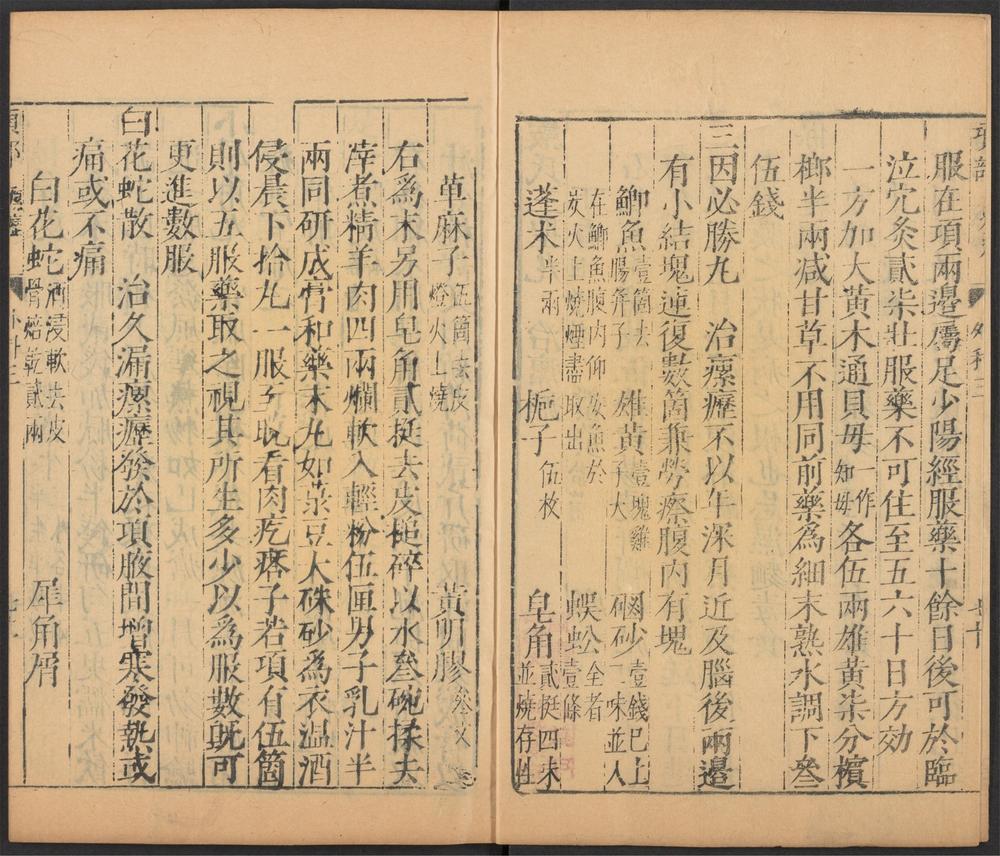 服在項兩邊屬足少陽經服藥十餘日後可於臨
泣穴灸貳柒壯服藥不可住至五六十日方効
一方加大黃木通貝毋一作知毋各伍兩雄黃柒分檳
榔半兩减甘草不用同前藥為細末熟水調下叁
伍錢
三因必勝丸　治瘰癧不以年深月近及腦後兩邊
有小結塊連復數箇兼勞瘵腹內有塊
鯽魚壹箇去腸弁子　雄黃壹塊雞子大　硇砂壹錢巳上二味並入
在鯽魚腹內仰安魚於炭火上燒煙盡取出　蜈蚣全者壹條
蓬朮半兩　梔子伍枚　皂角貳挺四味並燒存性
萆麻子伍箇去皮燈火上燒　黃明膠叁文
右為末另用皂角貳挺去皮搥碎以水叁碗揉去
滓煮精羊肉四兩爛軟入輕粉伍匣男子乳汁半
兩同研成膏和藥末丸如菉豆大硃砂為衣温酒
侵晨下拾丸一服至晚看肉疙瘩子若項有伍箇
則以五服藥取之視其所生多少以為服數既可
更進數服
白花蛇散　治久漏瘰癧發於項腋間增寒發熱或
痛或不痛
白花蛇酒浸軟去皮骨焙乾貳兩　犀角屑